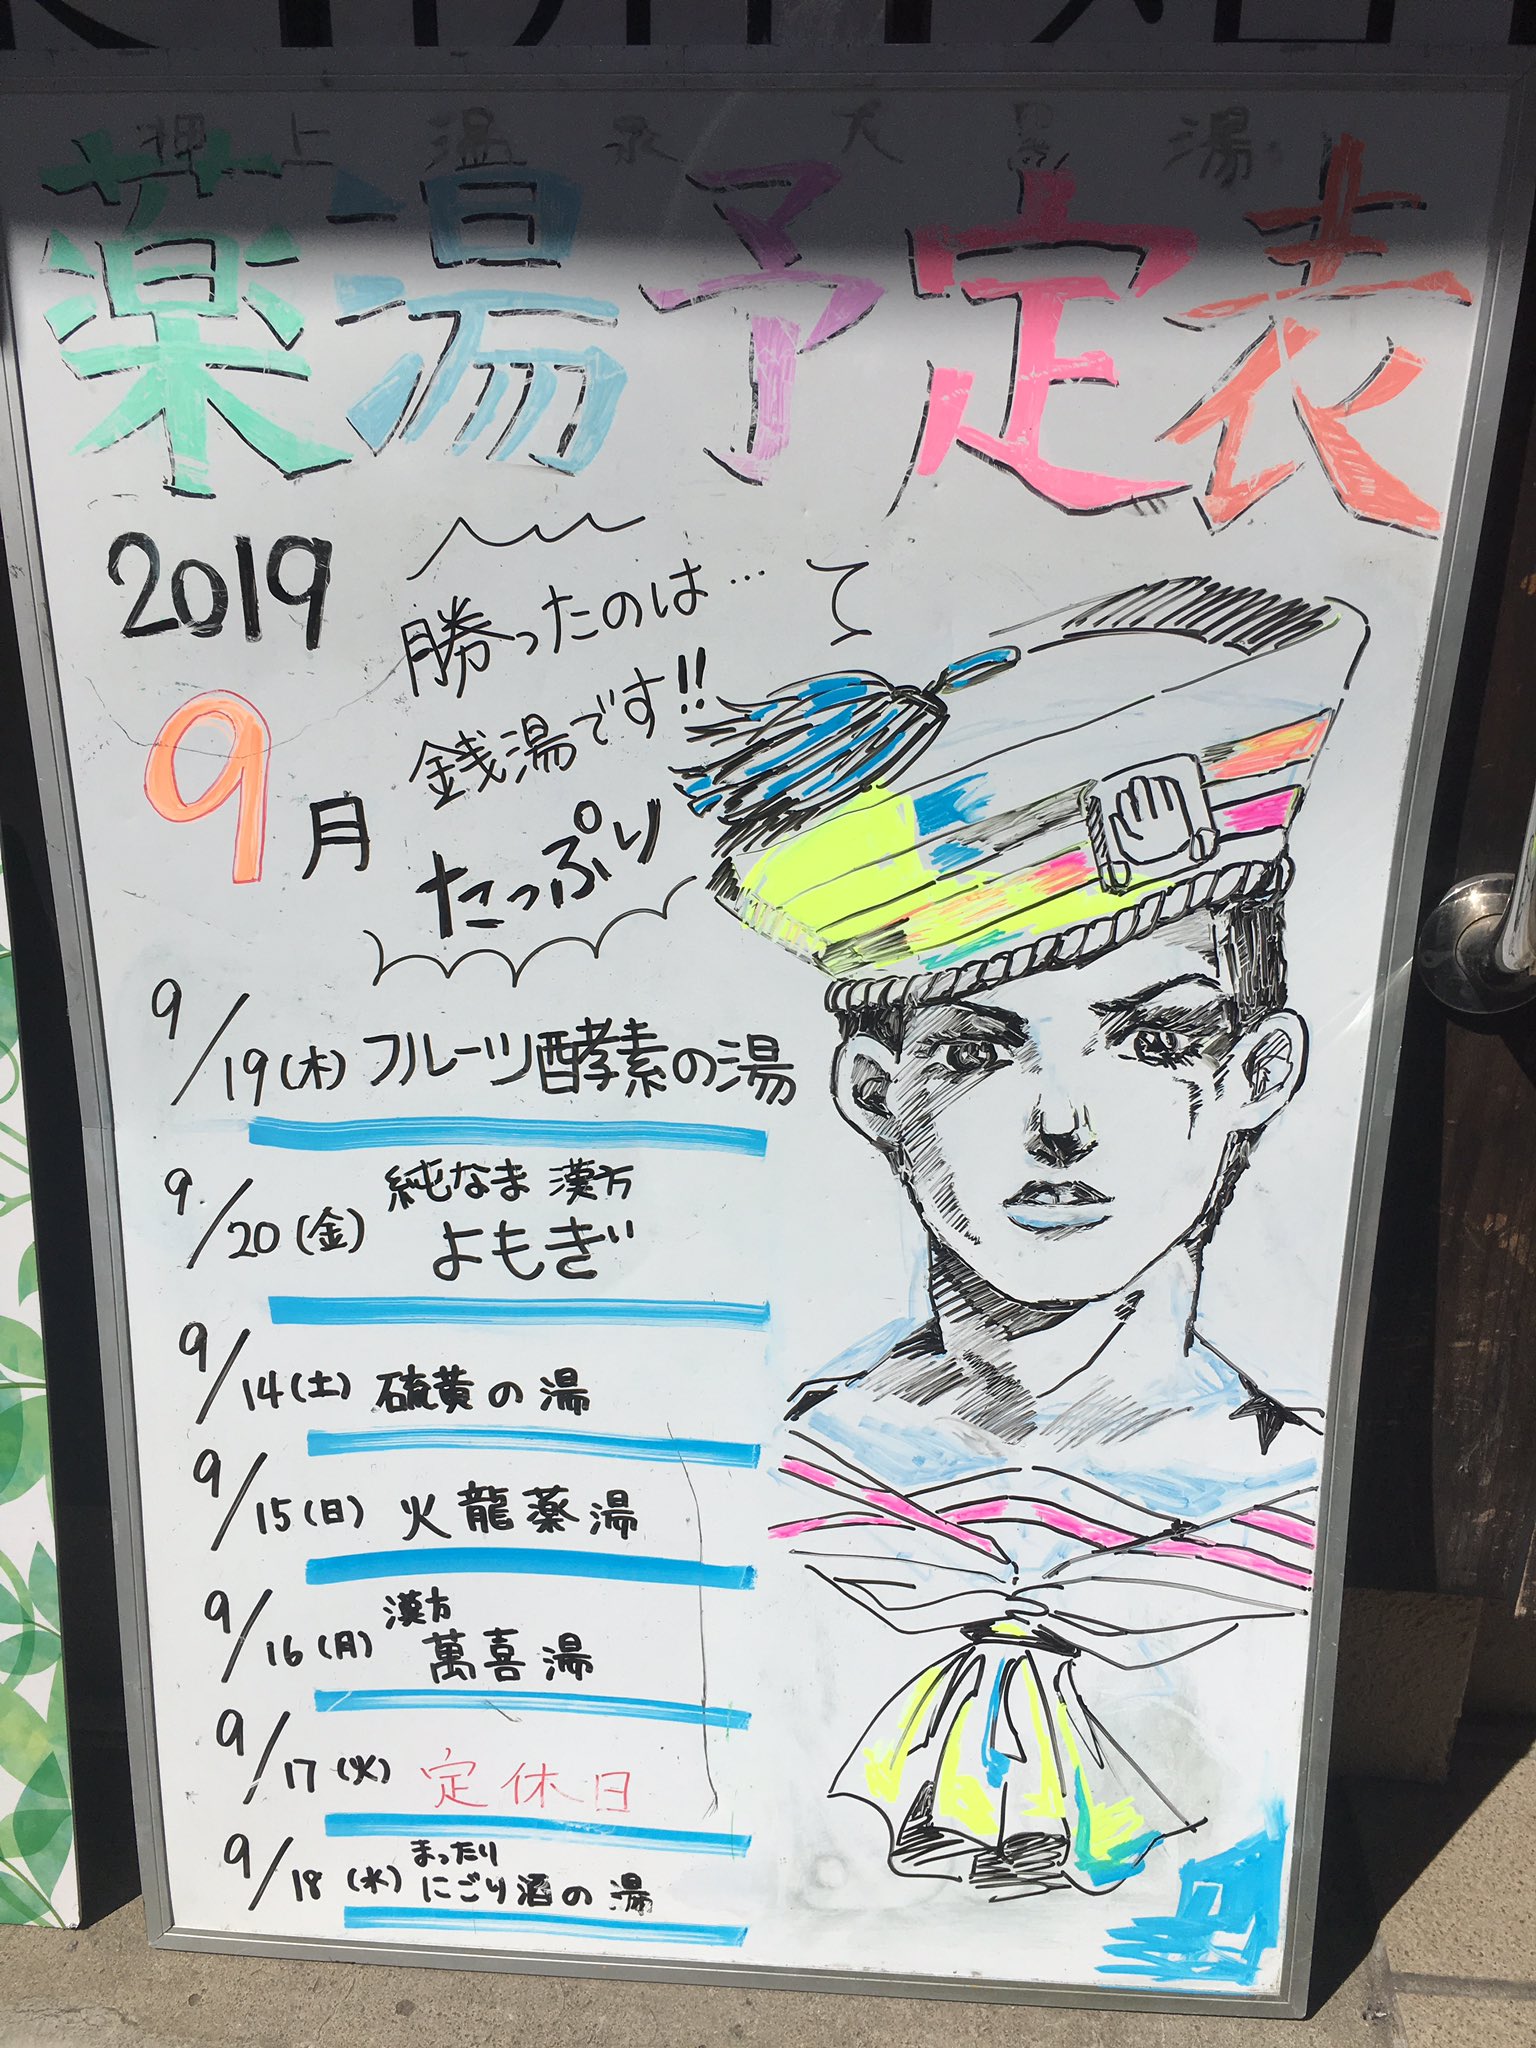 押上温泉大黒湯
薬湯予定表
2019
9月
勝ったのは…
銭湯です!!
たっぷり
9/19(木) フルーツ酵素の湯
9/20(金) 純なま漢方
よもぎ
9/14(土) 硫黄の湯
9/15(日) 火龍薬湯
9/16(月) 漢方
萬喜湯
9/17(火) 定休日
9/18(水) まったり
にごり酒の湯